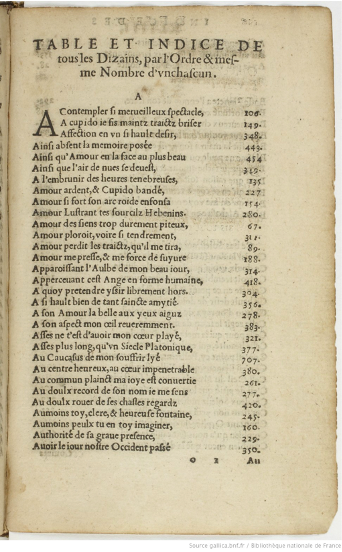 TABLE ET INDICE DE
tous les Dizains, par l'Ordre & mes-
me Nombre d'vnchascun.
A
A Contempler si merueilleux spectacle, 104.
A cupido ie fis maintz traictz briser 149.
Affection en vn si hault desir, 348.
Ainsi absent la memoire posée 443.
Ainsi qu'Amour en la face au plus beau 454
Ainsi que l'air de nues se deuest,
A l'embrunir des heures tenebreuses, 135
Amour ardent, & Cupido bandé, 227
Amour si fort son arc roide enfonsa 154.
Amour Lustrant tes sourcilz Hebenins. 280.
Amour des siens trop durement piteux, 67.
Amour ploroit, voire si tendrement, 311.
Amour perdit les traictz, qu'il me tira, 89.
Amour me presse, & me force de suyure 188.
Apparoissant l'Aulbe de mon beau iour, 314.
Apperceuant cest Ange en forme humaine, 418.
A quoy pretendre yssir librement hors. 304.
A si hault bien de tant saincte amytié 356.
A son Amour la belle aux yeux aiguz 278.
A son aspect mon œil reueremment. 383.
Asses ne t'est d'auoir mon cœur playé, 321.
Asses plus long, qu'vn Siecle Platonique, 377.
Au Caucasus de mon souffrir lyé 707.
Au centre heureux, au cœur impenetrable 380.
Au commun plainct ma ioye est conuertie 261.
Au doulx record de son nom ie me sens 277.
Au doulx rouer de ses chastes regardz 420.
Aumoins toy, clere, & heureuse fontaine, 245.
Aumoins peulx tu en toy imaginer, 160.
Authorité de sa graue presence, 229.
Auoir le iour nostre Occident passé 350.
O 2 Au
Source gallica.bnf.fr / Bibliothèque nationale de France